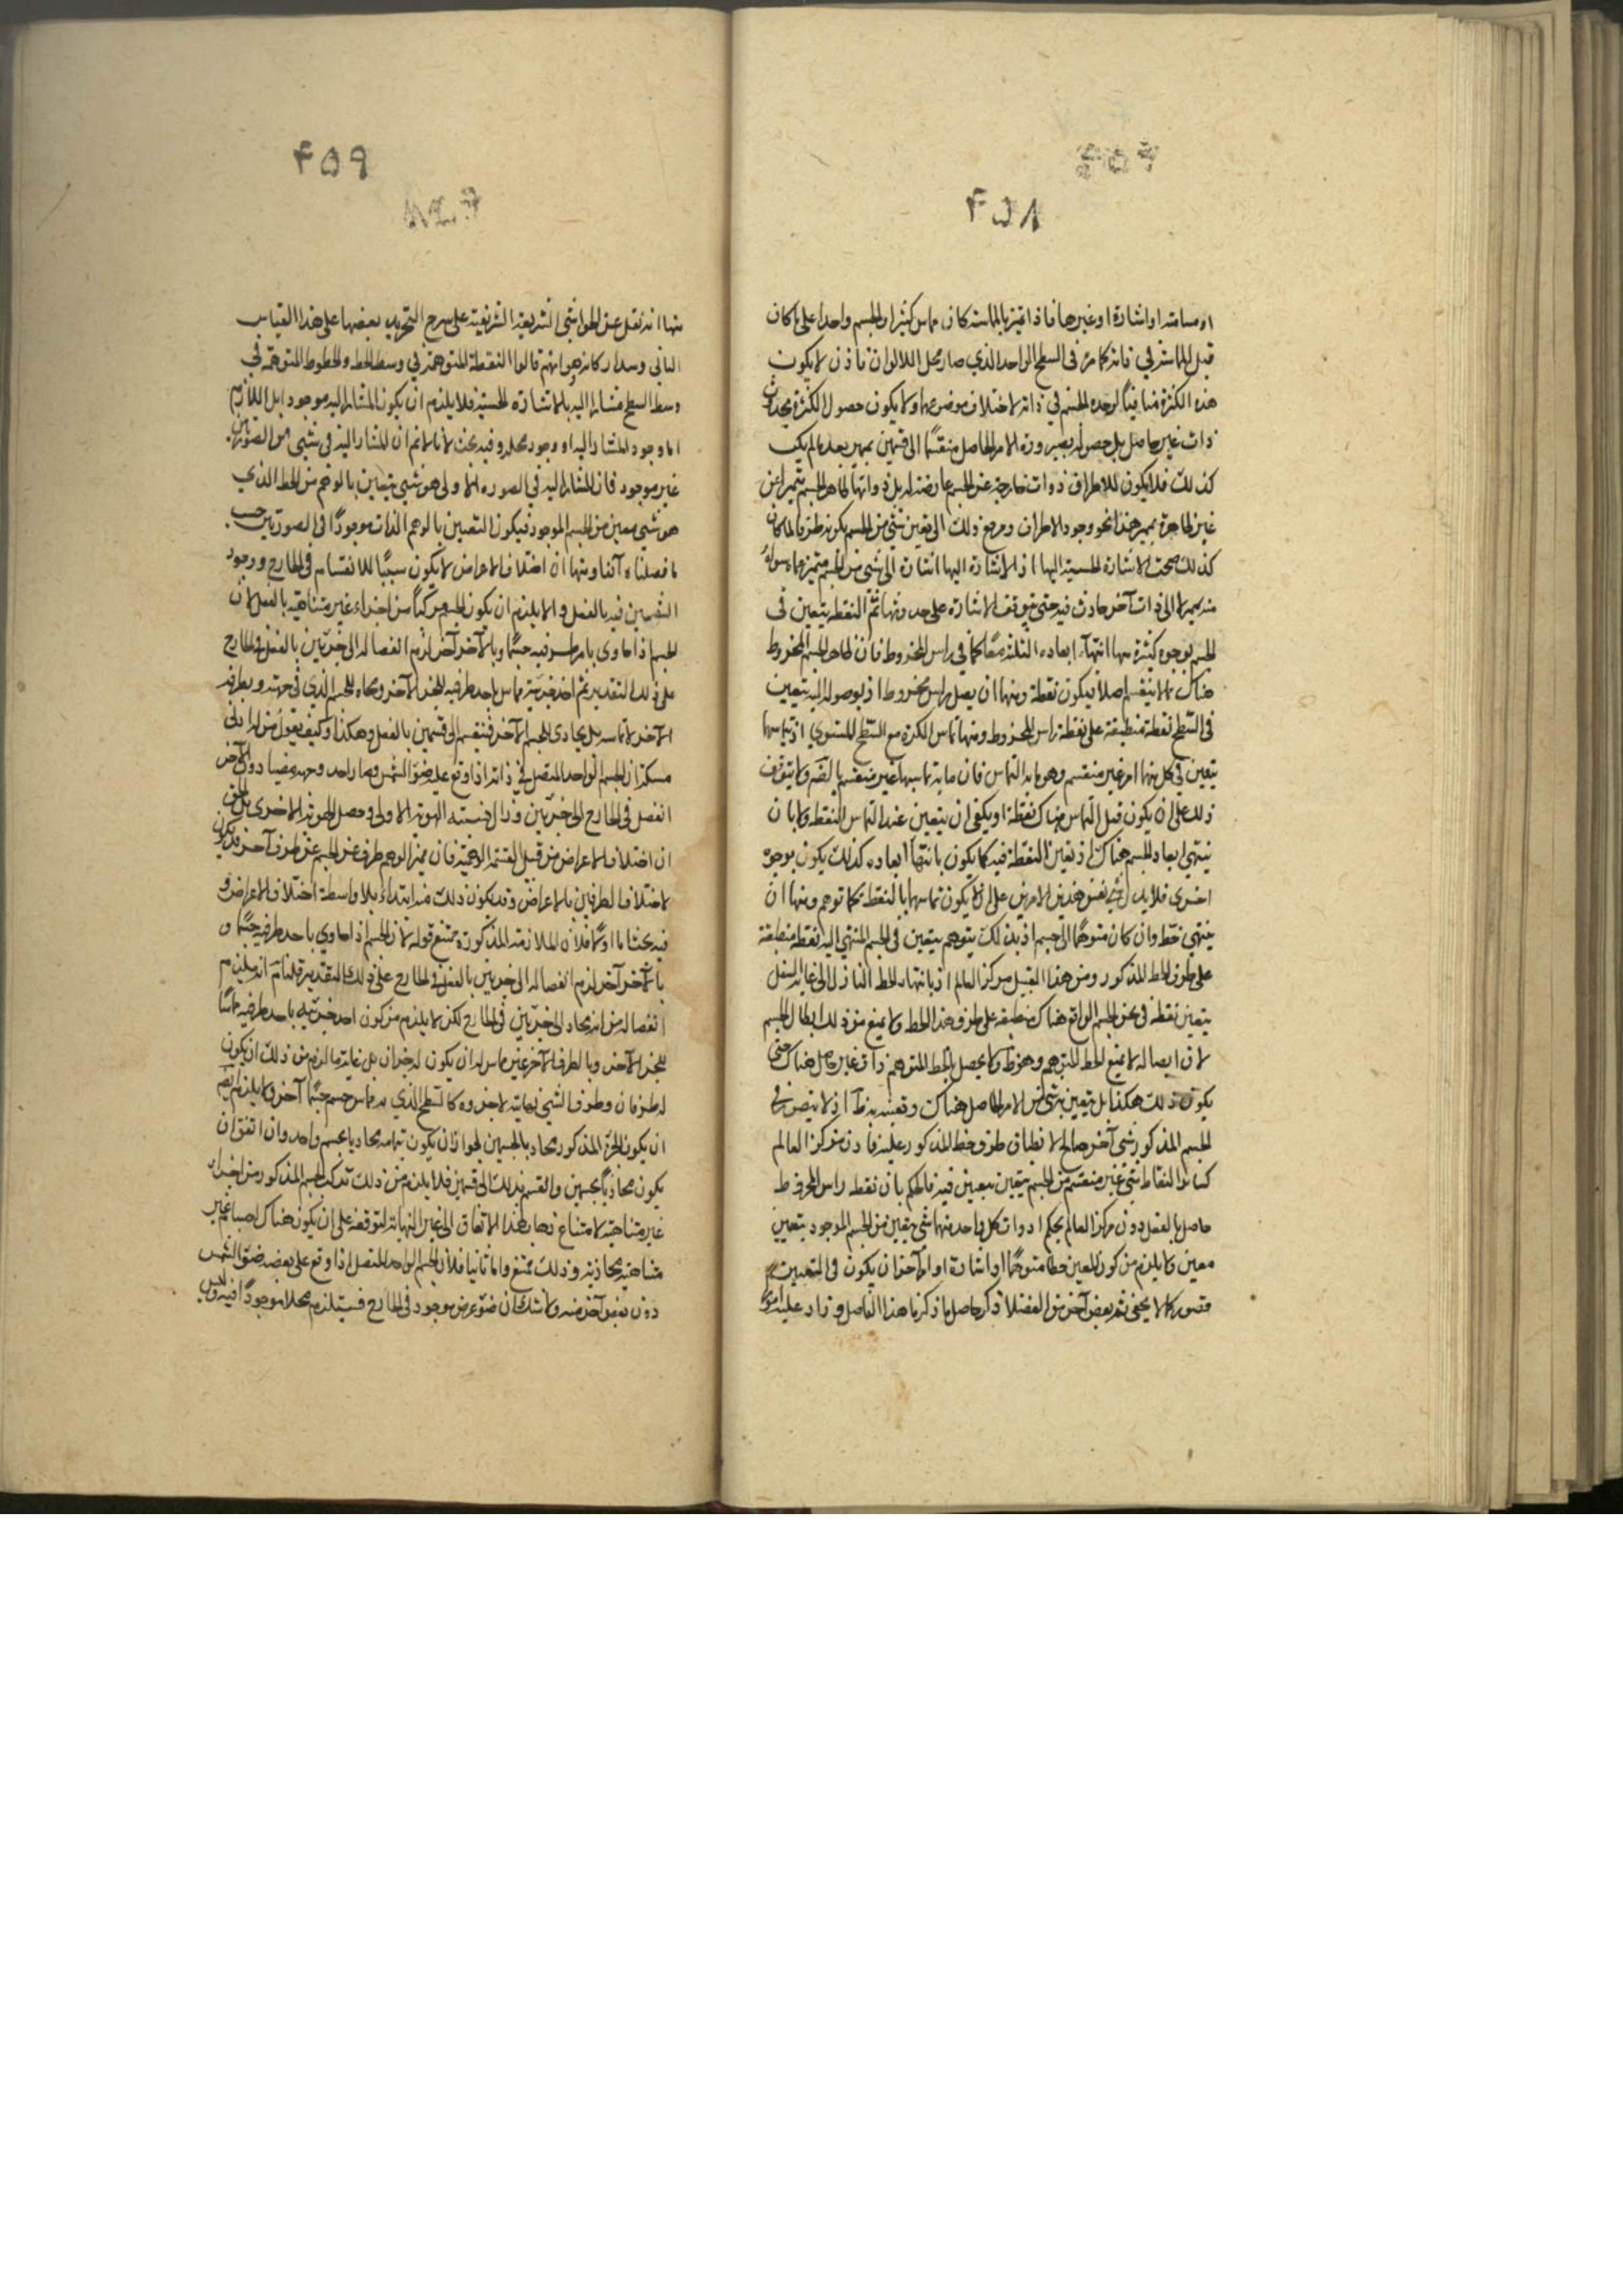 ۴۵۸
او مسامتة او اشارة او غيرها فاذا تميز بالماسة كان مماس كثيرا والجسم واحدا على ما كان
قبل المماسة في ذاته كما مر في السطح الواحد الذي صار محل اللالوان فاذن لا يكون
هذه الكثرة منافيا لوحدة الجسم في ذاته لاختلاف موضوعها ولا يكون حصول الكثرة بحدوث
ذات غير حاصل بل حصوله بصيرورة الامر الحاصل منقسما الى قسمين بمميز بعد ما لم يكن
كذلك فلا يكون للاطراف ذوات خارجية عن الجسم عارضة له بل ذواتها ظاهر الجسم متميزا عن
غير ظاهره بمميز هذا نحو وجود الاطراف ومرجع ذلك الى تعين شيء من الجسم يكون طرفا
كذلك صحت الاشارة الحسية اليها اذ الاشارة اليها اشارة الى شيء من الجسم متميز عما سواه
منه بمميز لا الى ذات آخر حادث فيه حتى يتوقف الاشارة على حدوثها ثم النقطة يتعين في
الجسم بوجوه كثيرة منها انتهاء ابعاده الثلثة معا كما في راس المخروط فان ظاهر الجسم المخروط
هناك مما لا ينقسم اصلا فيكون نقطة ومنها ان يصل راس مخروط اذ بوصوله اليه يتعين
في السطح نقطة منطبقة على نقطة راس المخروط ومنها تماس الكرة مع السطح المستوي اذ بتماسهما
يتعين في كل منهما امر غير منقسم وهو ما به التماس فان ما به تماسهما غير منقسم بالضرورة ولا يتوقف
ذلك على ان يكون قبل التماس هناك نقطة او يكفي ان يتعين عند التماس النقطة ولا بان
ينتهي ابعاد الجسم هناك اذ تعين النقطة فيه كما يكون بانتهاء ابعاده كذلك يكون بوجوه
اخرى فلا يدل نفي هذين الامرين على ان لا يكون تماسهما بالنقطة كما توهم ومنها ان
ينتهي خط وان كان متوهما الى جسم اذ بذلك يتوهم يتعين في الجسم المنتهي اليه نقطة منطبقة
على طرف الخط المذكور ومن هذا القبيل مركز العالم اذ بانتهاء الخط النازل الى غاية السفل
يتعين نقطة في عين الجسم الواقع هناك منطبقة على طرف هذا الخط ولا يمنع من ذلك ابطال الجسم
لان ايصاله لا يمنع الخط المتوهم وهو ظ ولا يحصل بالخط المتوهم ذات غير حاصل هناك حتى
يكون ذلك هكذا بل تعين شيء من الامر الحاصل هناك وقعينه به ظ اذ لا يتصور في
الجسم المذكور شيء آخر صالح لانطباق طرف خط المذكور عليه فاذن مركز العالم
كسائر النقاط شيء غير منقسم من الجسم يتعين بمعين فيه فالحكم بان نقطة راس المخروط
حاصل بالفعل دون مركز العالم بحكم اذ ذات كل واحد منهما شيء يتعين من الجسم الموجود بتعيين
معين ولا يلزم من كون المعين خطا متوهما او اشارة او امرا آخر ان يكون في التعيين
قصور كما لا يخفى ثم بعض آخر من الفضلا ذكر حاصل ما ذكرنا هذا الفاضل وزاد عليه امورا
۴۵۹
منها انه نقل عن الحواشي الشريفة الشريفية على شرح التجريد بعضها على هذا القياس
الباقي وسداركانه هو انهم قالوا النقطة المتوهمة في وسط الخط والخطوط المتوهمة في
وسط السطح مشار اليه بالاشارة الحسية فلا يلزم ان يكون المشار اليه موجودا بل اللازم
اما وجود المشار اليه او وجود محله وفيه بحث لانا لا نم ان المشار اليه في شيء من الصورتين
غير موجود فان المشار اليه في الصورة الاولى هو شيء يتعين بالوهم من الخط الذي
هو شيء معين من الجسم الموجود فيكون المتعين بالوهم الذات موجودا في الصورتين حسب
ما فصلناه آنفا ومنها ان اختلاف الاعراض لا يكون سببا للانقسام في الخارج ووجود
القسمين فيه بالفعل والا يلزم ان يكون الجسم مركبا من اجزاء غير متناهية بالفعل لان
الجسم اذا حاذى باحد طرفيه جسما وبالآخر آخر لزم انفصاله الى جزئين بالفعل في الخارج
على ذلك التقدير ثم احد جزئيه مماس باحد طرفيه للجزء الآخر ومحاذ للجسم الذي في جهته وبطرفه
الآخر لا تماسه بل يحاذى الجسم الآخر فينقسم الى قسمين بالفعل وهكذا وكيف يقول من له ادنى
مسكة ان الجسم الواحد المتصل في ذاته اذا وقع عليه ضوء الشمس وصار احد وجهيه مضيئا دون الآخر
انفصل في الخارج الى جزئين وزال جنبته الهوية الاولى وحصل الهوية الاخرى بل الحق
ان اختلاف الاعراض من قبيل القسمة الوهمية فان تميز الوهم طرف عن الجسم عن طرف آخر قد يكون
لاختلاف الطرفين بالاعراض وقد يكون ذلك منه ابتداء بلا واسطة اختلاف الاعراض و
فيه بحث اما اولا فلان الملازمة المذكورة ممتنع قوله لان الجسم اذا حاذى باحد طرفيه جسما و
بالآخر آخر لزم انفصاله الى جزئين بالفعل في الخارج على ذلك التقدير قلنا نم انه يلزم
انفصاله من انه يحاذى الى جزئين في الخارج لكن لا يلزم من كون احد جزئيه باحد طرفيه مماسا
للجزء الآخر وبالطرف الآخر غير مماس له ان يكون له جزءان بل غاية ما لزم من ذلك ان يكون
له طرفان وطرف الشيء نهايته لا جزءه كالسطح الذي به مماس جسم جسما آخر ولا يلزم ايضا
ان يكون الجزء المذكور محاذيا بالجسمين لجواز ان يكون بتمامه محاذيا بجسم واحد وان اتفق ان
يكون محاذيا بجسمين وانقسم بذلك الى قسمين فلا يلزم من ذلك تركب الجسم المذكور من اجزاء
غير متناهية لامتناع ذهاب هذا الاتفاق الى غير النهاية لتوقفه على ان يكون هناك اجسام غير
متناهية محاذية وذلك ممتنع واما ثانيا فلان الجسم الواحد المتصل اذا وقع على بعضه ضوء الشمس
دون بعض آخر منه ولا شك ان ضوء عرض موجود في الخارج فيستلزم محلا موجودا فيه وليس